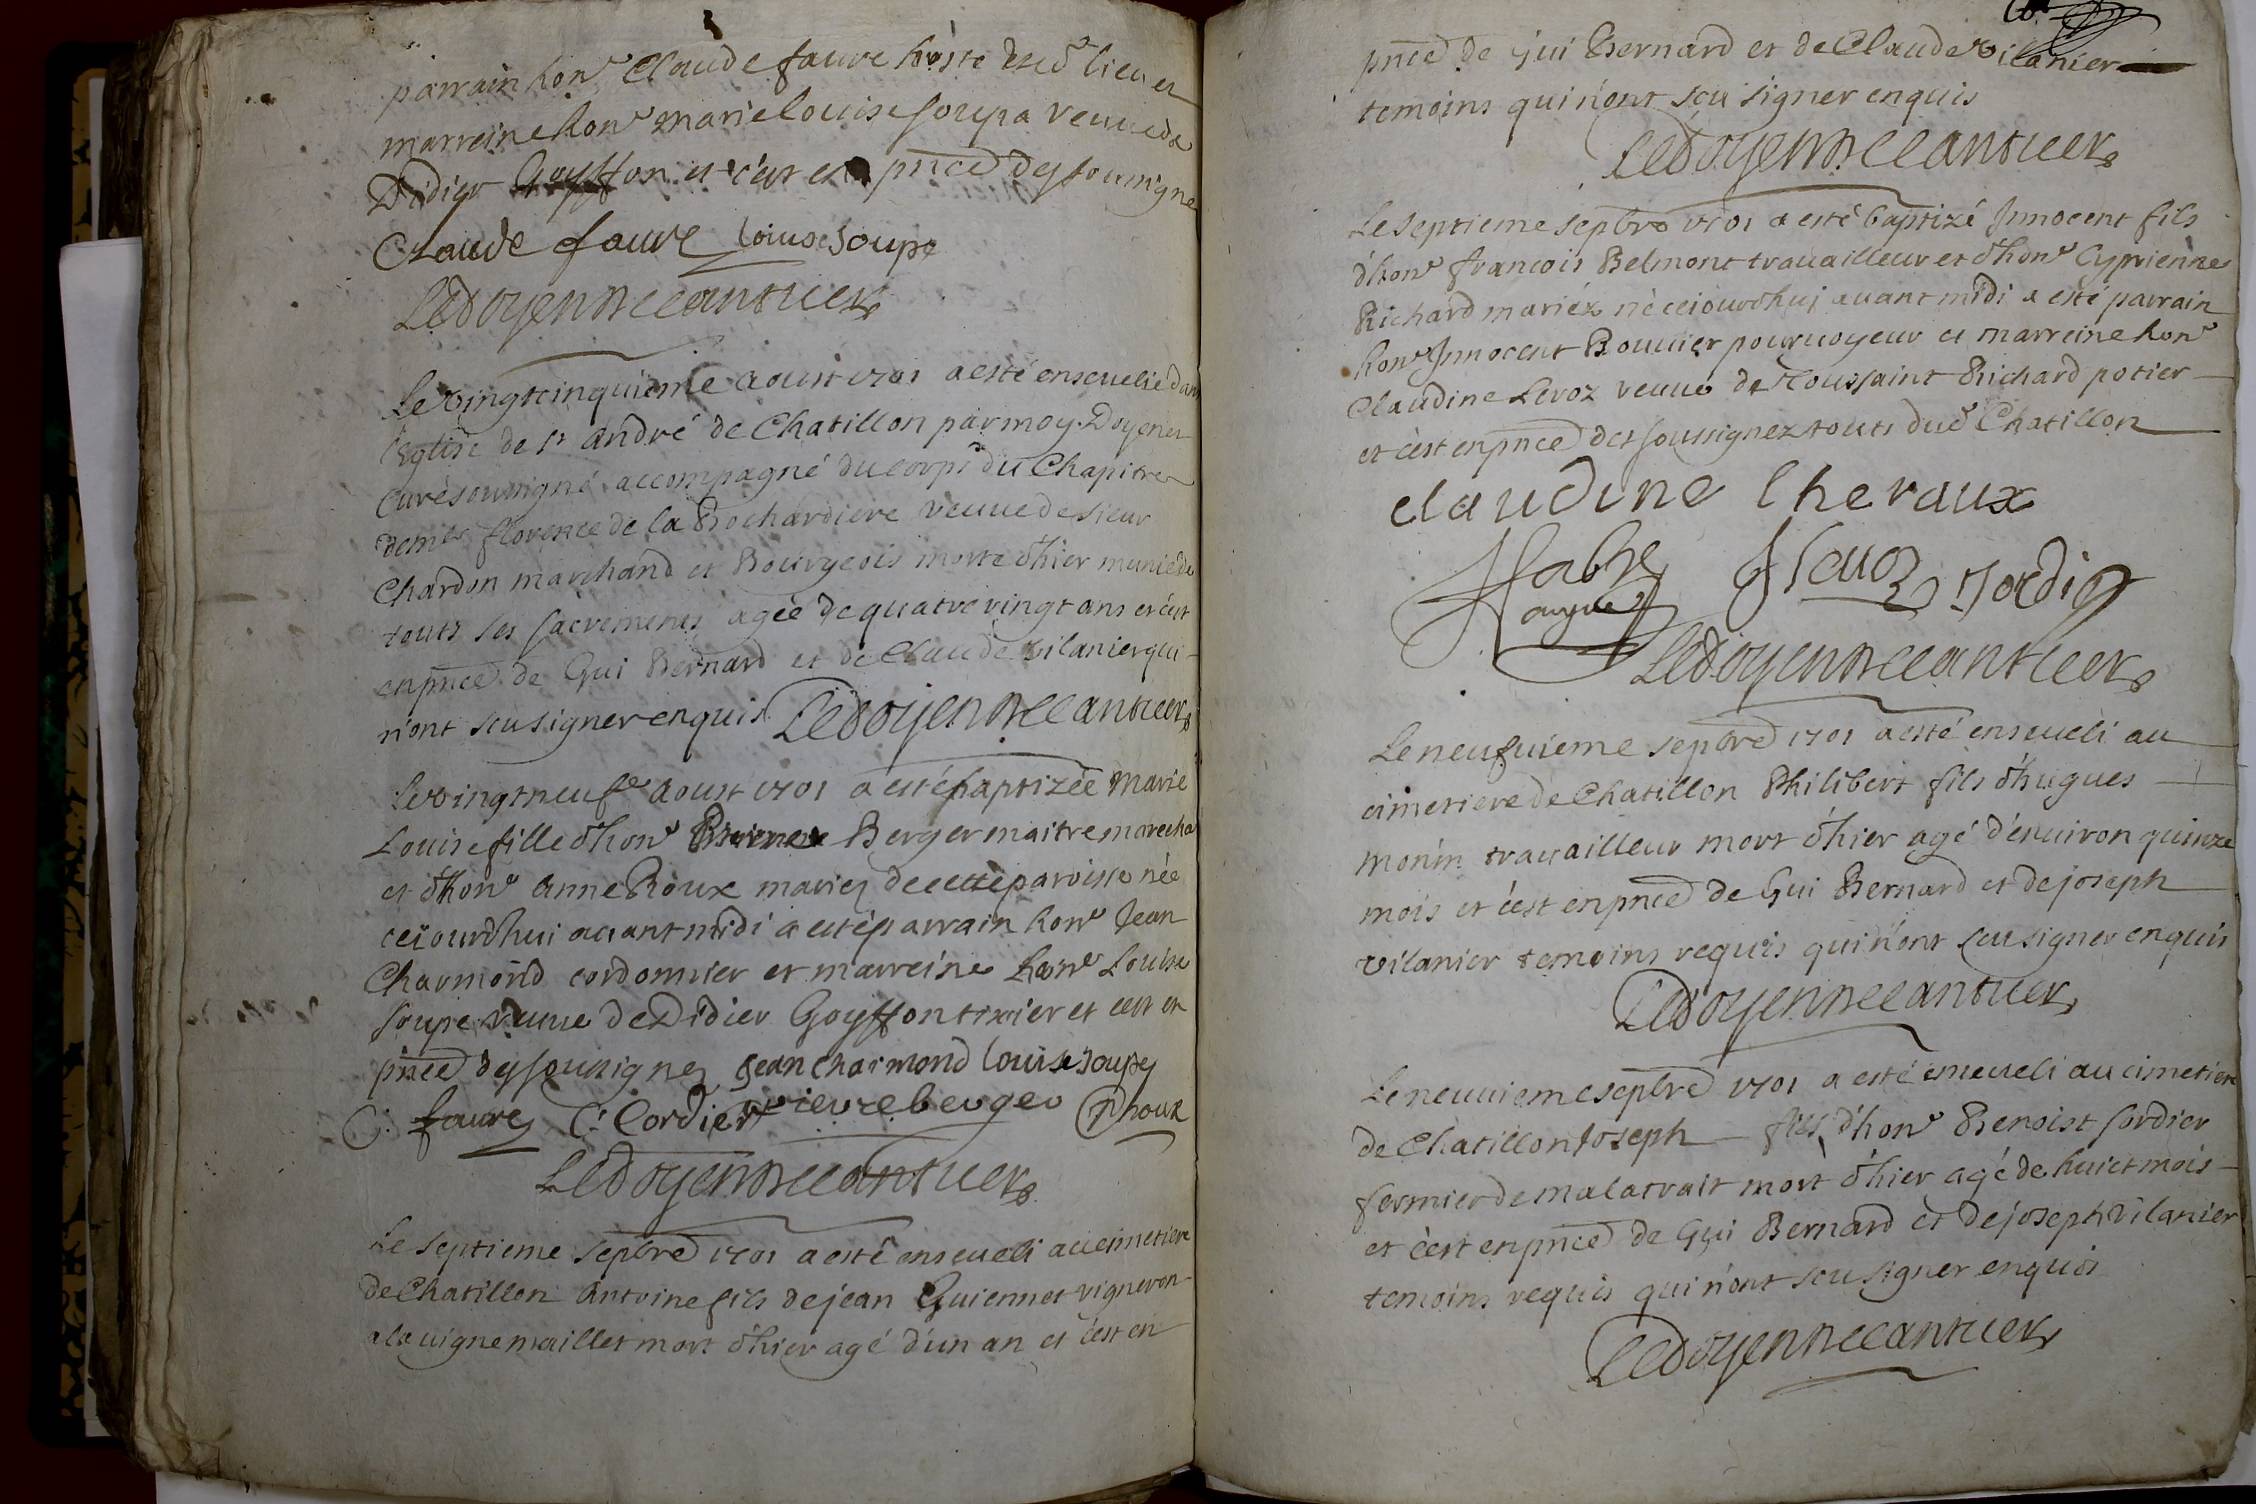 parrain hon^e Claude faure hoste dud^t lieu et
marreine hon^e marie louise soupa veuue de
Didier Goyffon et c'est en pñce des soussignes
Claude faure louise soupe
Ledoyen
Le vingtcinquieme aoust 1701 a esté enseuelie dans
l'Eglise de s^t André de Chatillon par moy Doyen et
Curé soussigné accompagné du corps du Chapitre
dem^lle florence de la Rochardiere veuue de sieur
Chardon marchand et Bourgeois morte d'hier munie de
touts ses sacrements agée de quatre vingt ans et c'est
en pñce de Gui Bernard et de Claude vilanier qui
n'ont sceu signer enquis Ledoyen
Le vingtneuf^e Aoust 1701 a esté baptizée Marie
Louise fille d'hon^e Berger maitre marechal
et d'hon^e Anne Roux mariez de cette paroisse née
ceiourd'hui auant midi a esté parrain hon^e Jean
Charmond cordonnier et marreine hon^e Louise
soupe veuue de Didier Goyffon tixier et c'est en
pñce des soussignez Jean Charmond louise soupe
C: faure C: Cordier pierre berger roux
Ledoyen
Le septieme sepbre 1701 a esté enseueli au cimetiere
de Chatillon Antoine fils de jean Guiennet vigneron
a la vigne maillet mort d'hier agé d'un an et c'est en
pñce de Gui Bernard et de Claude vilanier
temoins qui n'ont sceu signer enquis
Ledoyen
Le septieme sepbre 1701 a esté baptizé Jnnocent fils
d'hon^e francois Belmont trauailleur et d'hon^e Cyprienne
Richard mariéz né ceiourd'huj auant midi a esté parrain
hon^e Jnnocent Bouuier pouruoyeur et marreine hon^e
Claudine Leroz veuue de Toussaint Richard potier
et c'est en pñce des soussignez touts dud^t Chatillon
claudine lheraux
Ledoyen
Le neufuieme sepbre 1701 a esté enseueli au
cimetiere de Chatillon Philibert fils d'hugues
monin trauailleur mort d'hier agé d'enuiron quinze
mois et c'est en pñce de Gui Bernard et de joseph
vilanier temoins requis qui n'ont sceu signer enquis
Ledoyen
Le neuuieme sepbre 1701 a esté enseueli au cimetiere
de Chatillon Joseph fils d'hon^e Benoist Cordier
fermier de malatrait mort d'hier agé de huict mois
et c'est en pñce de Gui Bernard et de joseph vilanier
temoins requis qui n'ont sceu signer enquis
Ledoyen